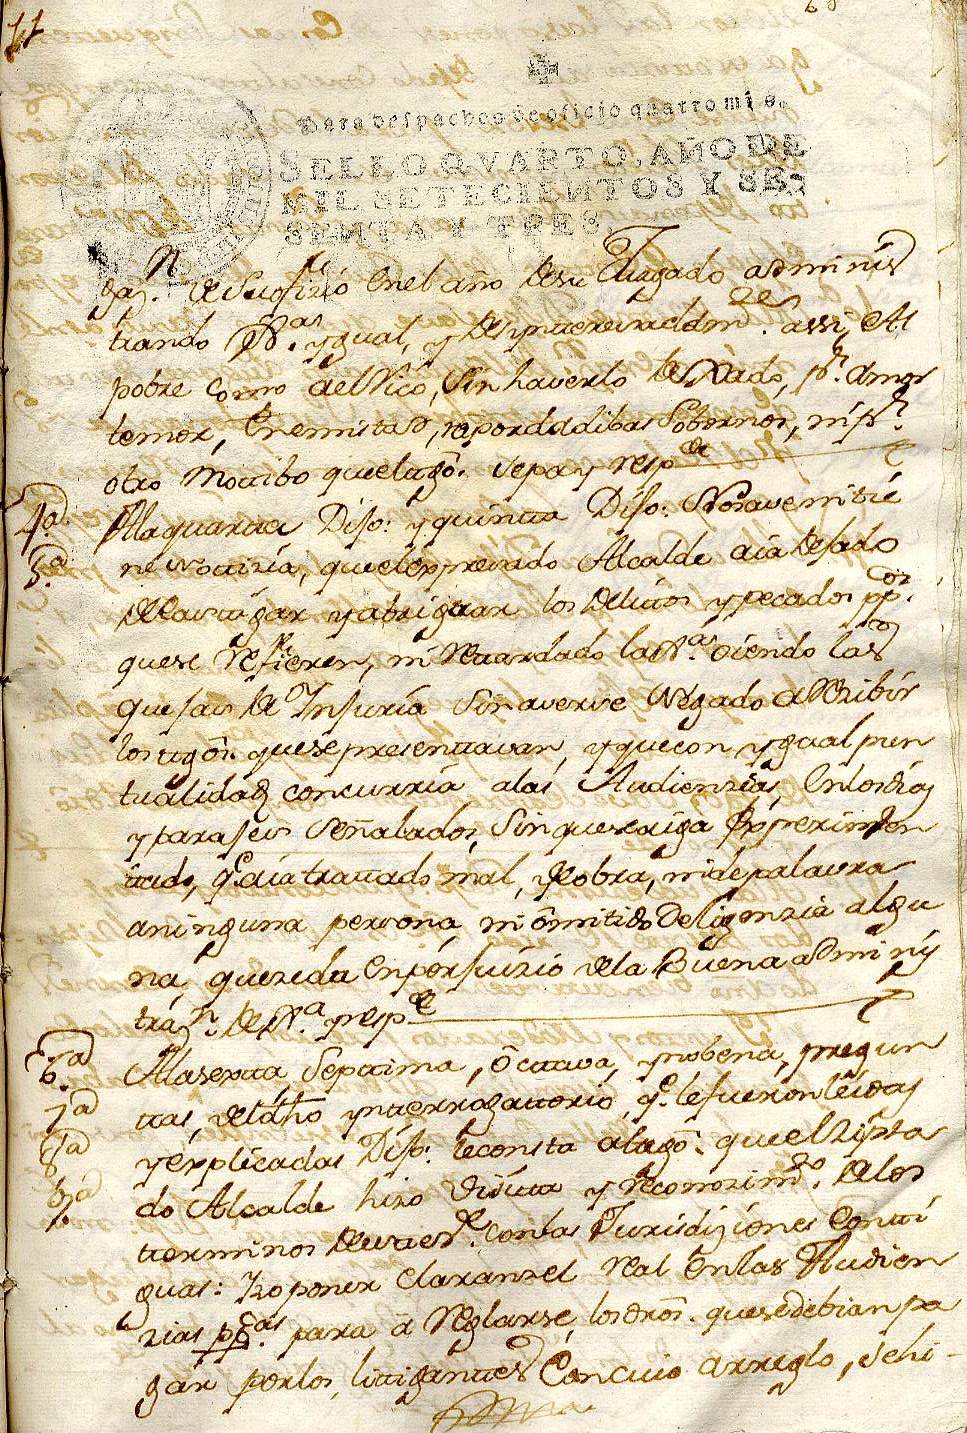 11
Para despachos de oficio quatro mrs.
SELLO QVARTO, AÑO DE
MIL SETECIENTOS Y SE-
SENTA Y TRES.
gaz.n de su ofizio en el año de su Juzgado adminis
trando J.as ygual, y de ynteresadam.te assi, Al
pobre como del Rico, sin haverlo dexado, p.r Amor
temor, Enemistad, no por dadibas sobornos, ni p.r
otro Motibo que el tgo. sepa y resp.de
4.a A la quarta Dijo: y quinta Dijo: No save ni tie
5.a ne noticia, que el expresado Alcalde aia dejado
de Castigar y abriguar los delitos y pecados pp.cos
que se refieren, ni retardado la J.a oiendo las
quejas de Injuria sin averse negado a Rezibir
los tgos. que se presentavan, y que con ygual pun
tualidad concurria a las Audienzias en los dias
y parajes señalados, sin que se aiga experimen
tado, q.e aia tratado mal, de obra, ni de palavra
a ninguna persona, ni omitido Deligenzia algu
na, que zeda en perjuizio de la Buena adminis
traz.n de J.a y resp.de
6.a A la sexta Septima, octava, y nobena, pregun
7.a tas, del dho ynterrogatorio, q.e le fueron leidas
8.a y explicadas Dijo: le consta al tgo. que el zita
9.a do Alcalde hizo Visita y reconozim.to de los
terminos de esta con las Jurisdiziones Conti
guas: Izo poner el aranzel Real en las Audien
zias pp.cas para a Reglarse, los dros. que se debian pa
gar por los, litigantes Con cuio arreglo, se hi-